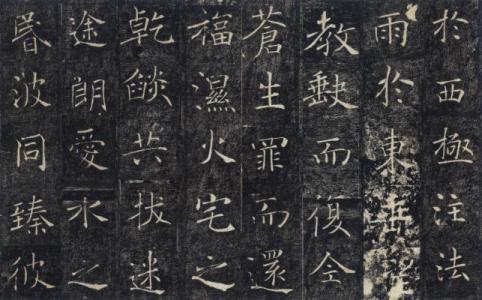 於西極注法
雨於東垂聖
教缺而復全
蒼生罪而還
福濕火宅之
乾燄共拔迷
途朗愛水之
昬波同臻彼